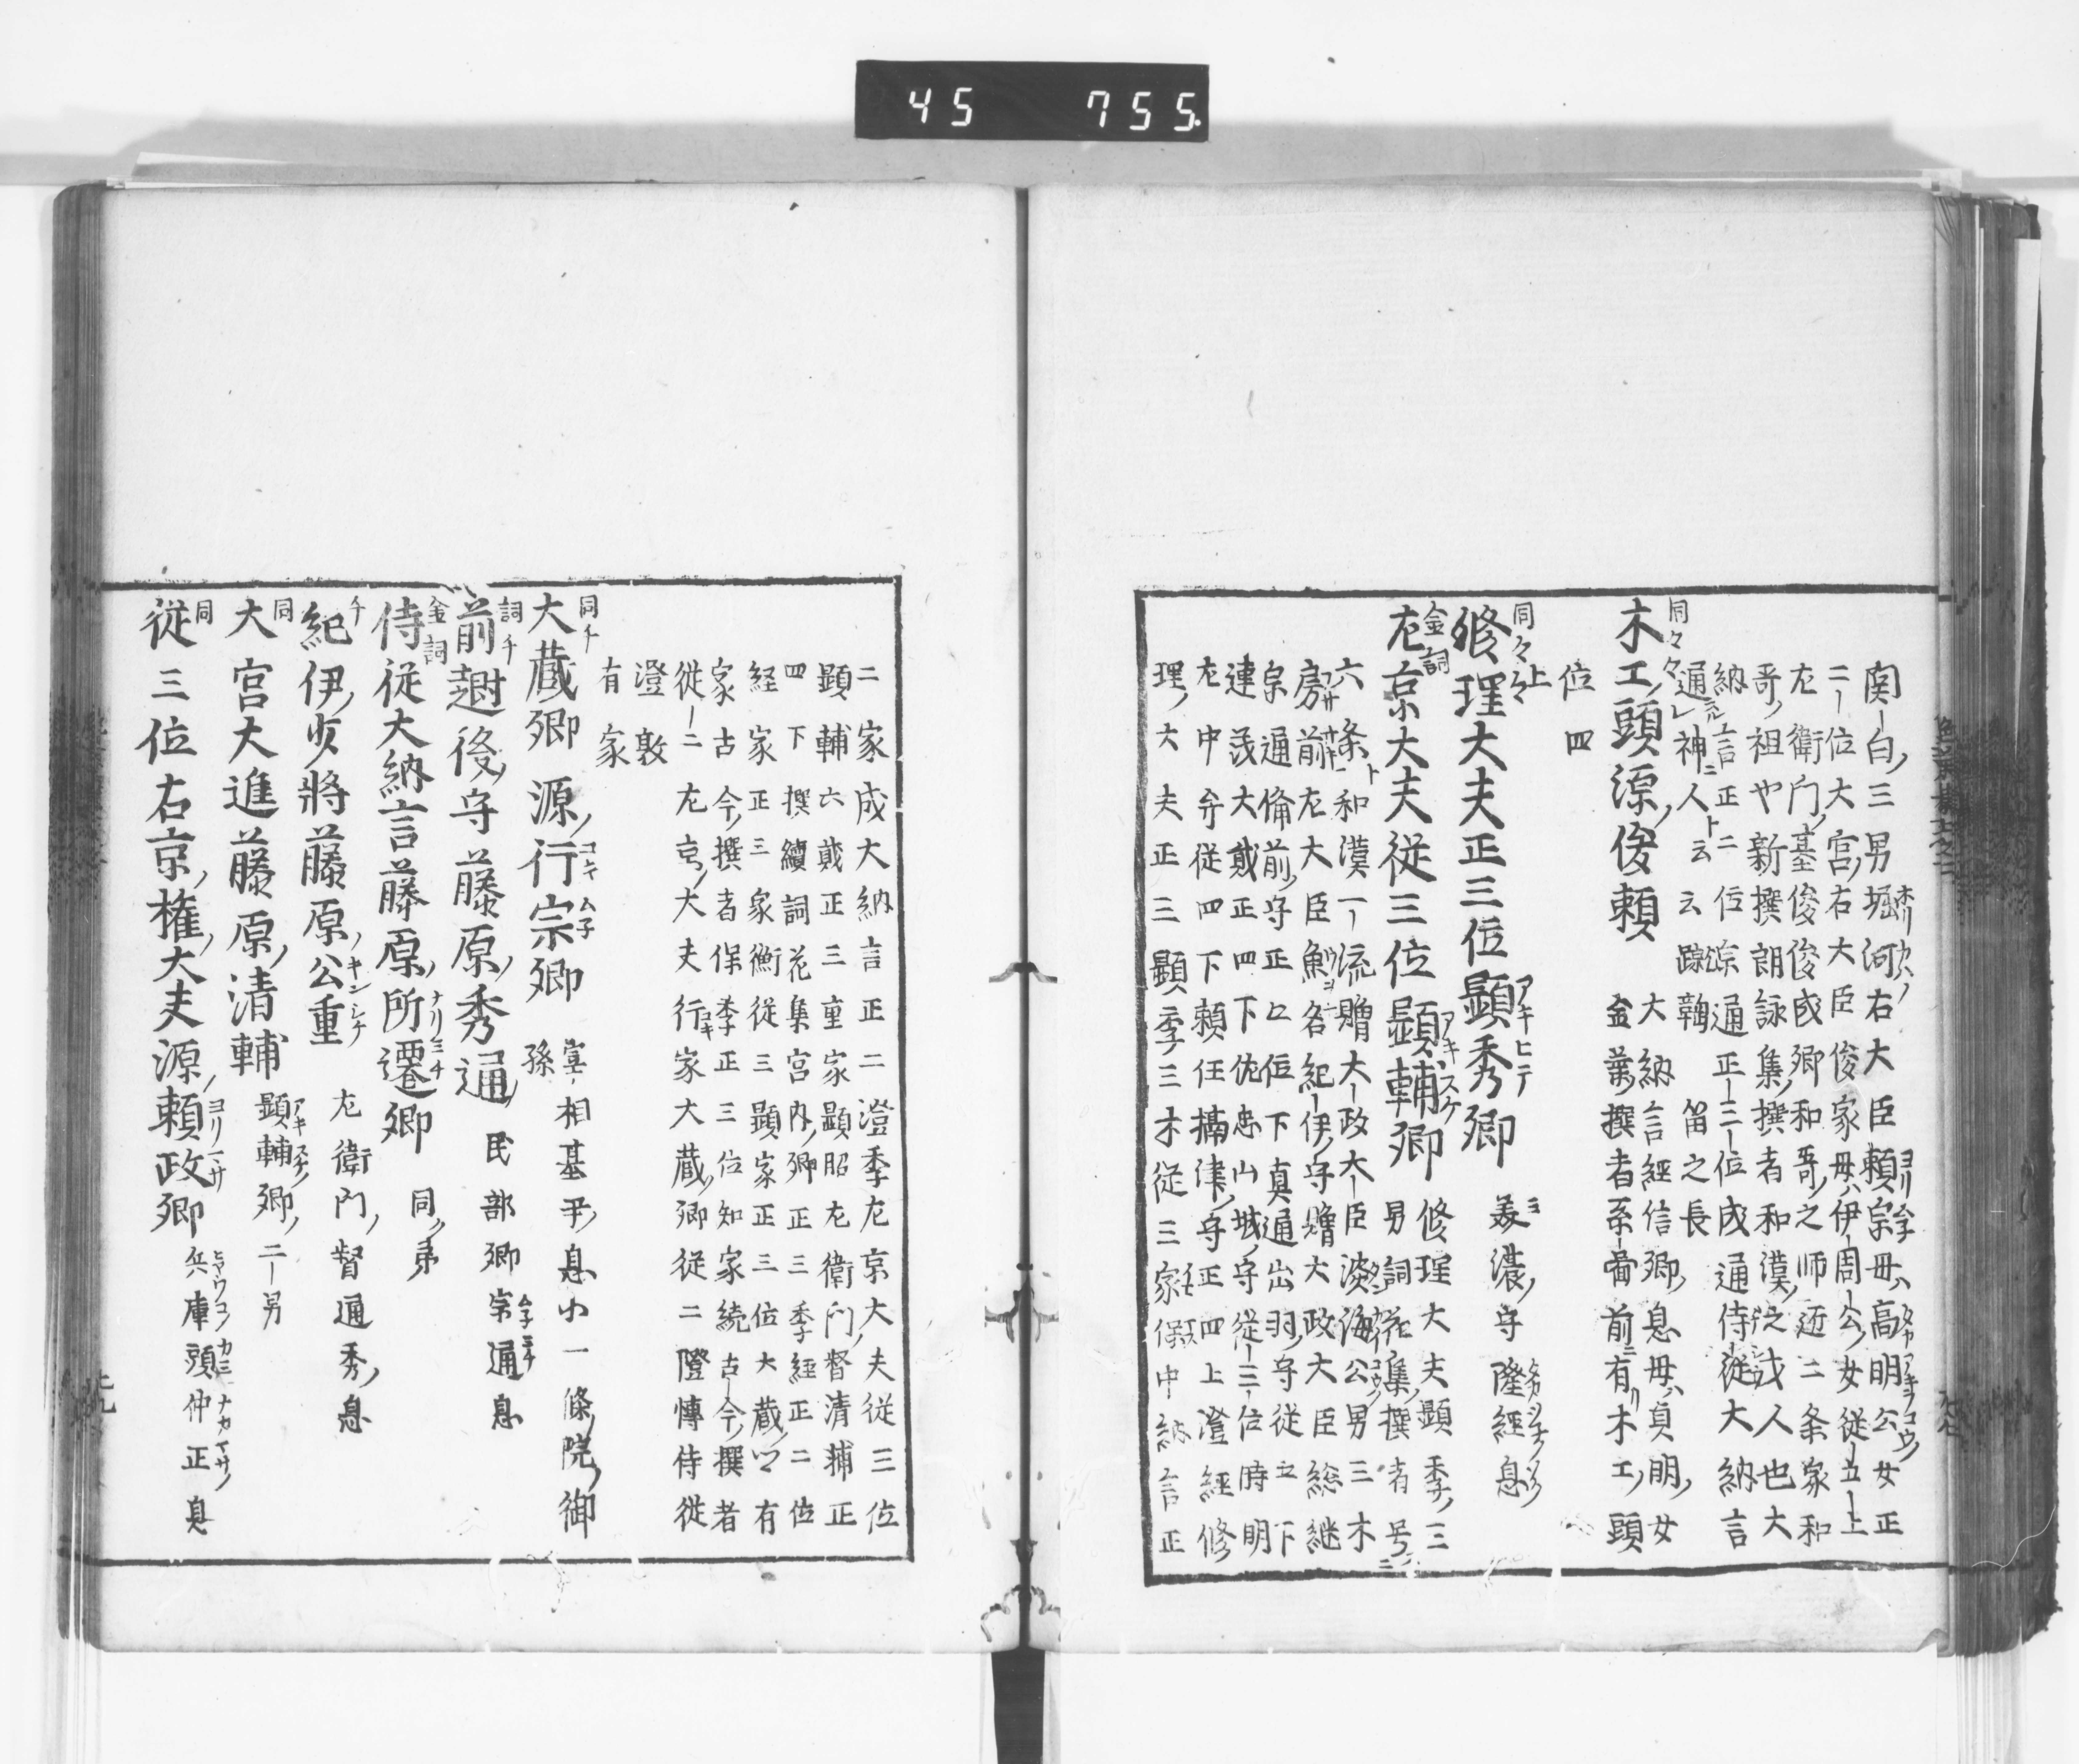 45 755
関白三男堀河右大臣頼宗母ハ高明公女正
二位大宮右大臣俊家母ハ伊周公女従上
左衛門基俊俊成卿和哥之師近二条家和
哥祖也新撰朗詠集撰者和漢人也大
納言正二位宗通正三位成通侍従大納言
通神ニ人ト云云蹴鞠笛之長
同々々
木工頭源俊頼
大納言経信卿息母ハ貞明女
金葉撰者系啚前ニ有リ木工頭
位四
同々々上
修理大夫正三位顕秀卿
アキヒテ
美濃守隆経息
金詞
左京大夫従三位顕輔卿
アキスケ
修理大夫顕季三
男詞花集撰者号
六条和漢一流贈大政大臣淡海公男三木
房前左大臣魚名紀伊守贈大政大臣総継
宗通備前守正位下真通出羽守従下
連茂大蔵正四下佐忠山城守従三位時明
左中弁従四下頼任摂津守正四上澄経修
理大夫正三顕季三木従三家保中納言正
二家成大納言正二澄季左京大夫従三位
顕輔六蔵正三重家顕昭左衛門督清輔正
四下撰續詞花集宮内卿正三季経正二位
経家正三家衡従三顕家正三位大蔵有
家古今撰者保季正三位知家続古今撰者
従二左京大夫行家大蔵卿従二隆博侍従
澄敦
有家
同千
大蔵卿源行宗卿
ユキムネ
宰相基平息小一條院御
孫
詞千
前越後守藤原秀通
民部卿宗通息
金詞
侍従大納言藤原所遷卿
ナリミチ
同弟
千
紀伊少将藤原公重
キンシケ
左衛門督通秀息
同
大宮大進藤原清輔
顕輔卿二男
同
従三位右京権大夫源頼政卿
ヨリマサ
兵庫頭仲正息